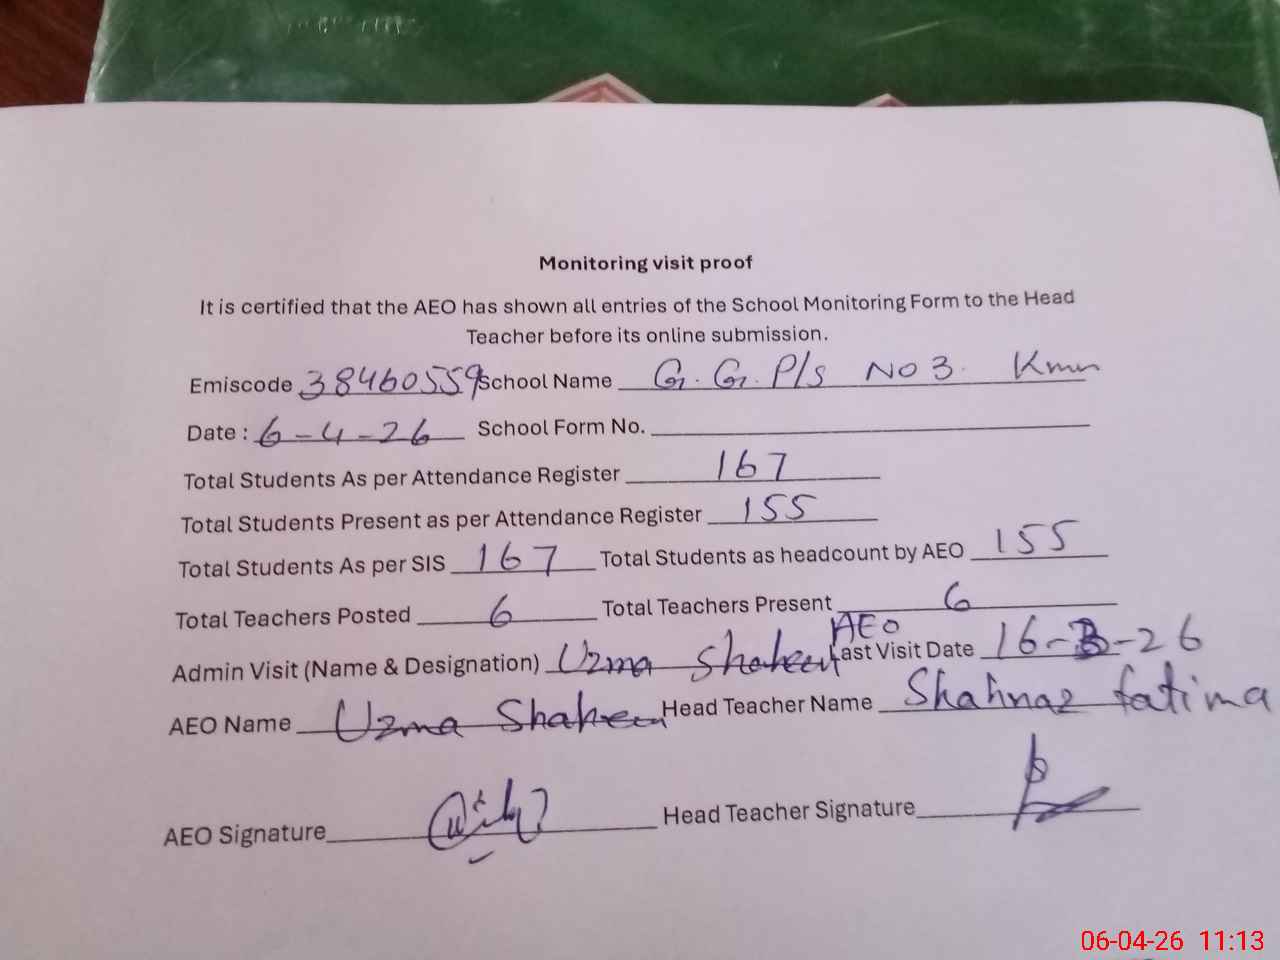 Monitoring visit proof
It is certified that the AEO has shown all entries of the School Monitoring Form to the Head
Teacher before its online submission.
Emiscode 38460559 School Name G.G.P/s NO 3. Kmn
Date : 6-4-26 School Form No.
Total Students As per Attendance Register 167
Total Students Present as per Attendance Register 155
Total Students As per SIS 167 Total Students as headcount by AEO 155
Total Teachers Posted 6 Total Teachers Present 6
Admin Visit (Name & Designation) Uzma Shaheen AEO Last Visit Date 16-3-26
AEO Name Uzma Shaheen Head Teacher Name Shahnaz fatima
AEO Signature Head Teacher Signature
06-04-26 11:13